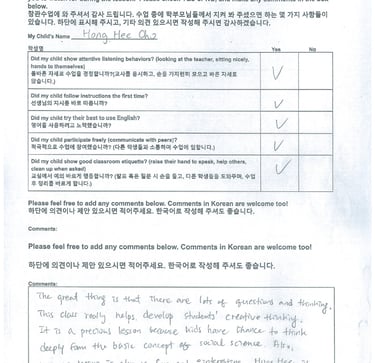 below.
참관수업에 와 주셔서 감사 드립니다. 수업 중에 학부모님들께서 지켜 봐 주셨으면 하는 몇 가지 사항들이
있습니다. 하단에 표시해 주시고, 기타 의견 있으시면 작성해 주시면 감사하겠습니다.
My Child's Name Hong Hee Oh
학생명 Yes No
Did my child show attentive listening behaviors? (looking at the teacher, sitting nicely,
hands to themselves)
올바른 자세로 수업을 경청합니까?(교사를 응시하고, 손을 가지런히 모으고 바른 자세로
앉습니다.)
Did my child follow instructions the first time?
선생님의 지시를 바로 따릅니까?
Did my child try their best to use English?
영어를 사용하려고 노력했습니까?
Did my child participate freely (communicate with peers)?
적극적으로 수업에 참여했습니까? (다른 학생들과 소통하며 수업에 임합니다.)
Did my child show good classroom etiquette? (raise their hand to speak, help others,
clean up when asked)
교실에서 예의 바르게 행동합니까? (발표 혹은 질문 시 손을 들고, 다른 학생들을 도와주며, 수업
후 정리를 바르게 합니다.)
Please feel free to add any comments below. Comments in Korean are welcome too!
하단에 의견이나 제안 있으시면 적어주세요. 한국어로 작성해 주셔도 좋습니다.
Comments:
Please feel free to add any comments below. Comments in Korean are welcome too!
하단에 의견이나 제안 있으시면 적어주세요. 한국어로 작성해 주셔도 좋습니다.
Comments:
The great thing is that there are lots of questions and thinking.
This class really helps develop students' creative thinking.
It is a precious lesson because kids have chance to think
deeply from the basic concept of social science. Also,